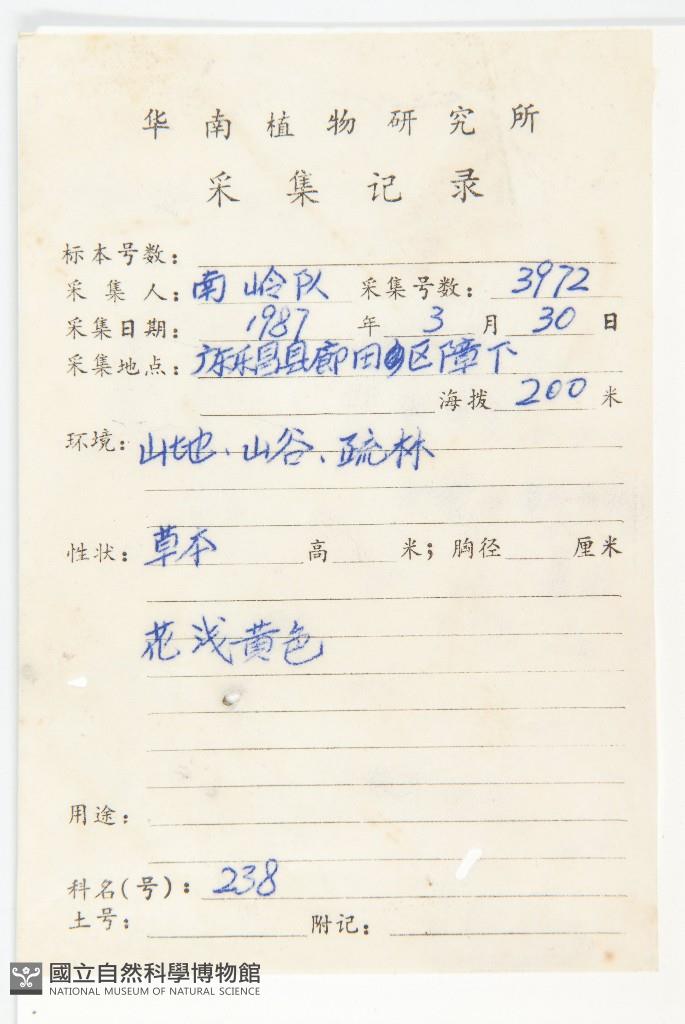 华南植物研究所
采集记录
标本号数:
采集人: 南岭队 采集号数: 3972
采集日期: 1987 年 3 月 30 日
采集地点: 广东乐昌县廊田区障下
海拨 200 米
环境: 山地、山谷、疏林
性状: 草本 高 米; 胸径 厘米
花浅黄色
用途:
科名(号): 238
土号: 附记:
國立自然科學博物館
NATIONAL MUSEUM OF NATURAL SCIENCE